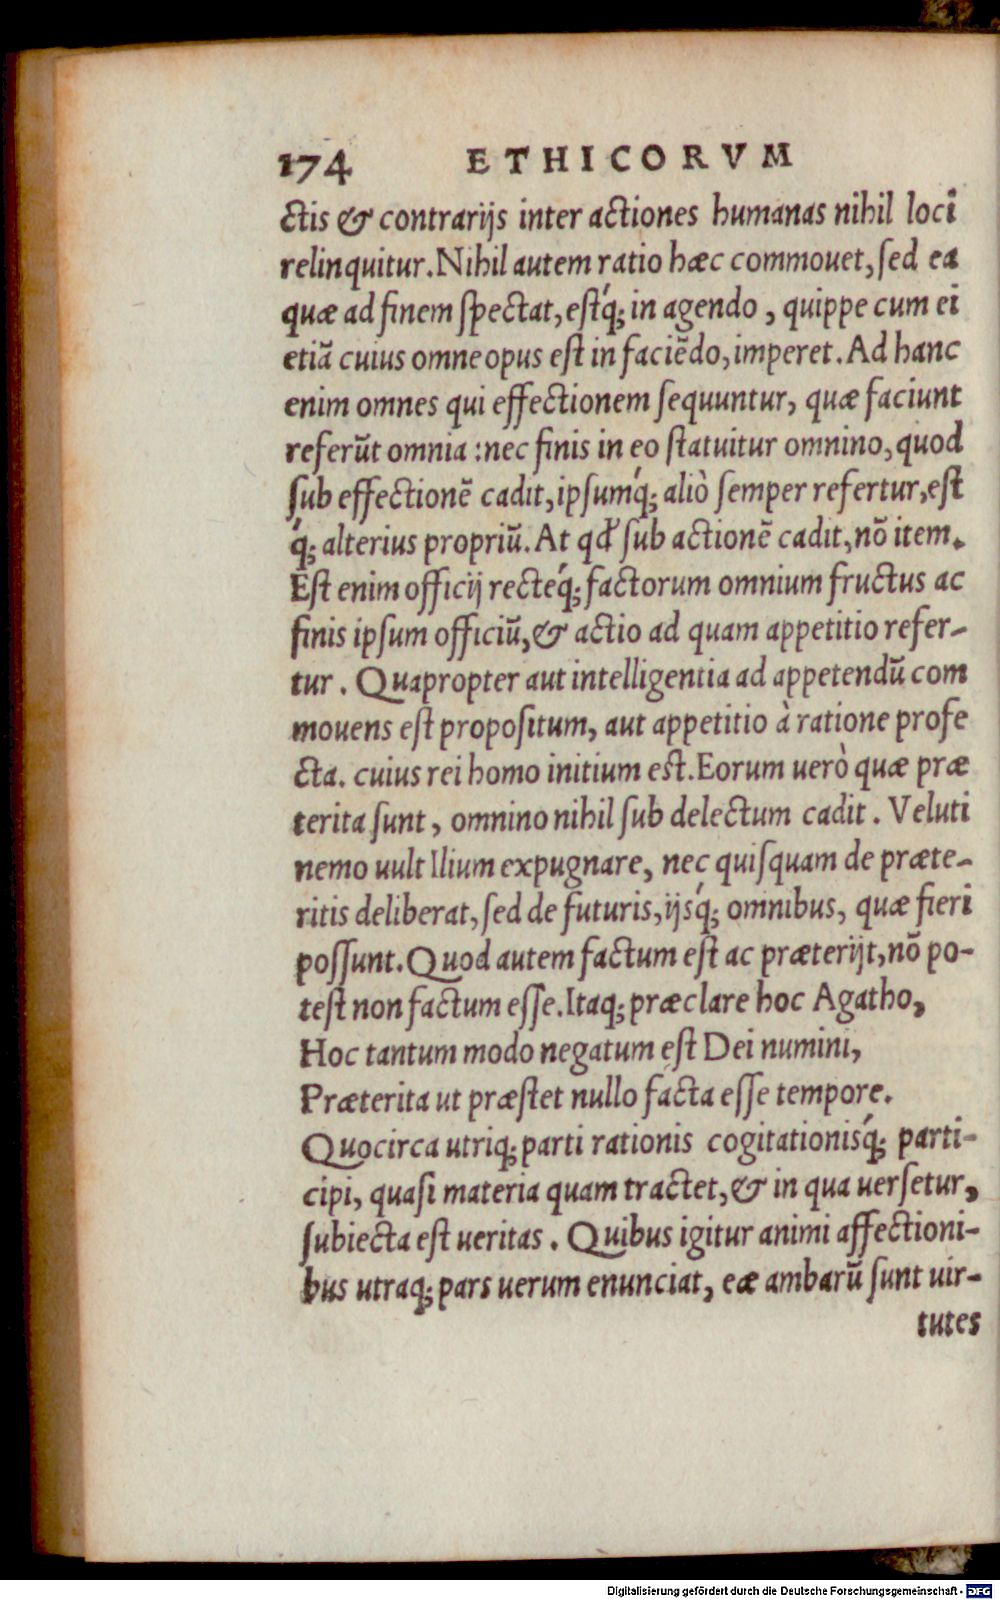 174 ETHICORVM
ctis & contrarijs inter actiones humanas nihil loci
relinquitur. Nihil autem ratio hæc commouet, ſed ea
quæ ad finem ſpectat, eſtq́; in agendo, quippe cum ei
etiã cuius omne opus eſt in faciẽdo, imperet. Ad hanc
enim omnes qui effectionem ſequuntur, quæ faciunt
referũt omnia: nec finis in eo ſtatuitur omnino, quod
ſub effectionẽ cadit, ipſumq́; aliò ſemper refertur, eſt
q́; alterius propriũ. At qđ ſub actionẽ cadit, nõ item.
Eſt enim officij recteq́; factorum omnium fructus ac
finis ipſum officiũ, & actio ad quam appetitio refer-
tur. Quapropter aut intelligentia ad appetendũ com
mouens eſt propoſitum, aut appetitio à ratione profe
cta. cuius rei homo initium est. Eorum uerò quæ præ
terita ſunt, omnino nihil ſub delectum cadit. Veluti
nemo uult Ilium expugnare, nec quiſquam de præte-
ritis deliberat, ſed de futuris, ijsq́; omnibus, quæ fieri
poſſunt. Quod autem factum eſt ac præterijt, nõ po-
teſt non factum eſſe. Itaq; præclare hoc Agatho,
Hoc tantum modo negatum eſt Dei numini,
Præterita ut præſtet nullo facta eſſe tempore.
Quocirca utriq; parti rationis cogitationisq́; parti-
cipi, quaſi materia quam tractet, & in qua uerſetur,
ſubiecta eſt ueritas. Quibus igitur animi affectioni-
bus utraq; pars uerum enunciat, eæ ambarũ ſunt uir-
tutes
Digitalisierung gefördert durch die Deutsche Forschungsgemeinschaft - DFG